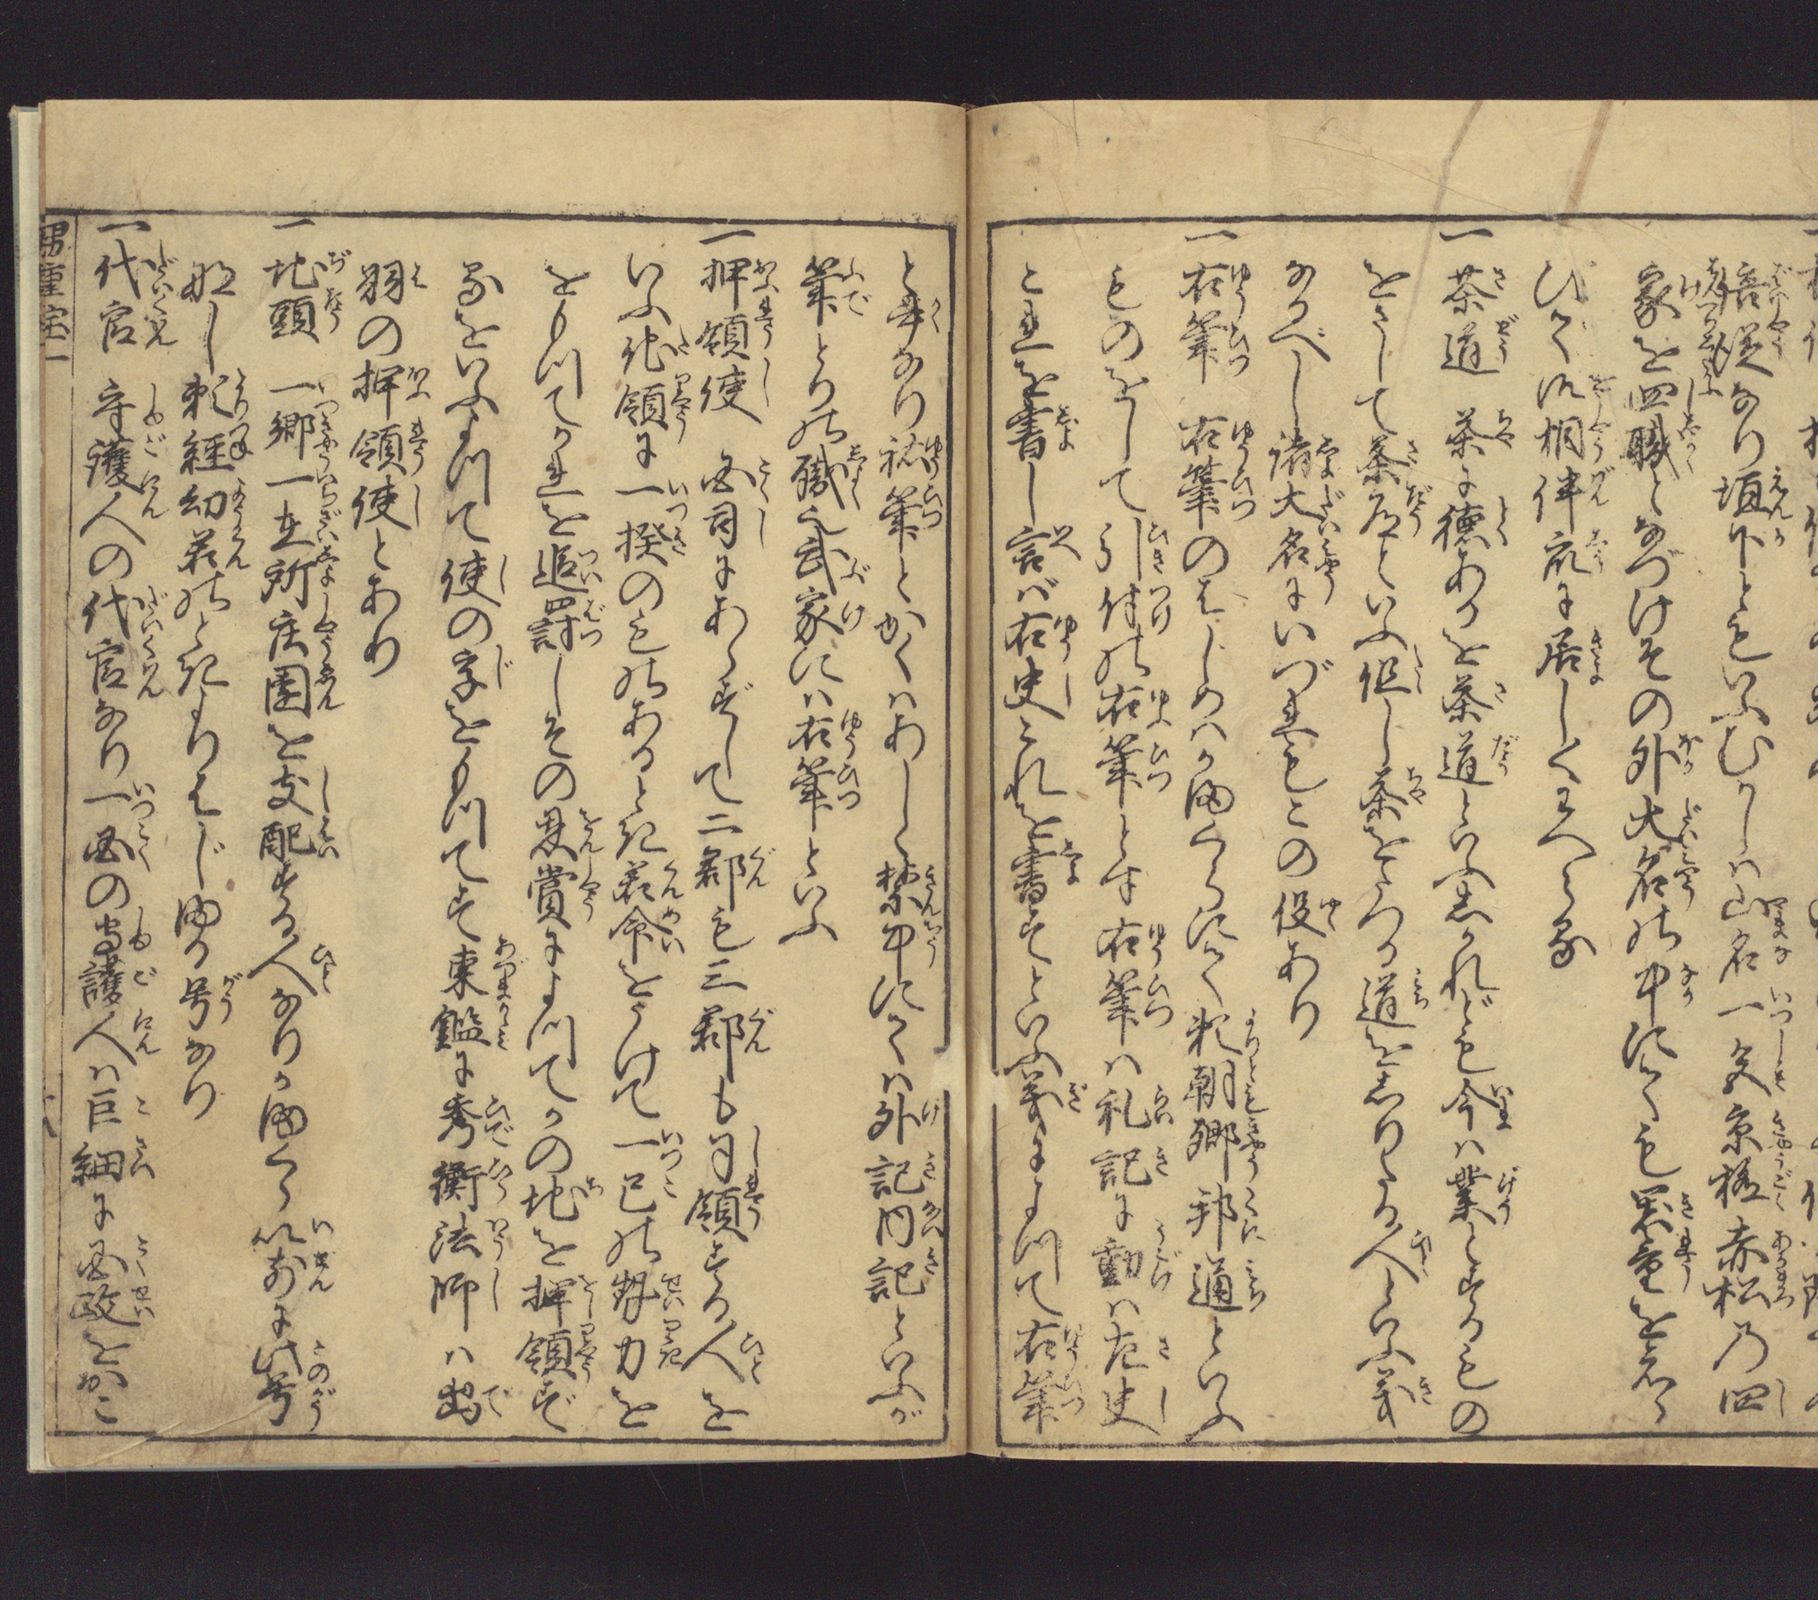 陪従なり垣下ともいふむかしハ山名一色京極赤松乃四
家を四職となづけその外大名の中にても器量をえら
びて御相伴衆に居しくはへらる
一茶道　茶に徳あるを茶道といふ然れども今ハ業とするもの
をさして茶道といふ但し茶をたつる道をしりたる人といふ義
なるべし諸大名にいづれもこの役あり
一右筆　右筆のはじめハかまくらにて頼朝卿邦通といふ
ものをして引付の右筆とす右筆ハ礼記に動ハ左史
これを書し言バ右史これを書すといふ義によつて右筆
と書なり祐筆とかくハあしく禁中にてハ外記内記といふが
筆とりの職也武家にハ右筆といふ
一押領使　国司にあらずして二郡も三郡も司領する人を
いふ他領に一揆のものあるとき君命をうけて一己の勢力を
をもつてこれを追罰しその恩賞によつてかの地を押領す
るをいふよつて使の字をもつてす東鑑に秀衡法師ハ出
羽の押領使とあり
一地頭　一郷一在所庄園を支配する人なりかまくら以前に此号
なし頼経幼君のときよりはじまる号なり
一代官　守護人の代官なり一国の守護人ハ巨細に国政をおこ